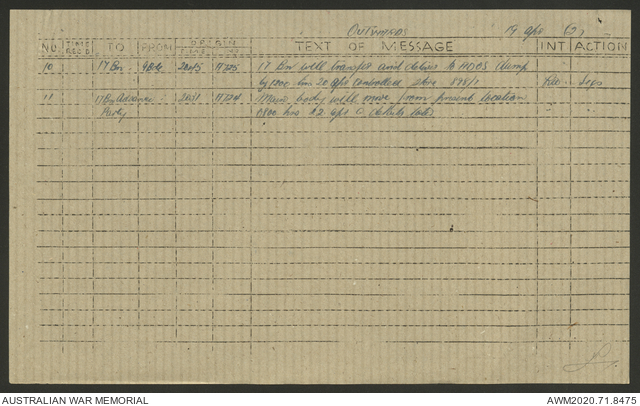 OUTWARDS 19 Apr (2)
NO TIME RECD TO FROM ORIGIN TIME NO TEXT OF MESSAGE INT ACTION
10 17 Bn 4 Bde 2015 A725 17 Bn will transfer and deliver to ADOS dump
by 1200 hrs 20 Apl controlled store
11 17 Bn Advance A724 Main body will move from present location
Party 0800 hrs 22 Apl details later
AUSTRALIAN WAR MEMORIAL AWM2020.71.8475